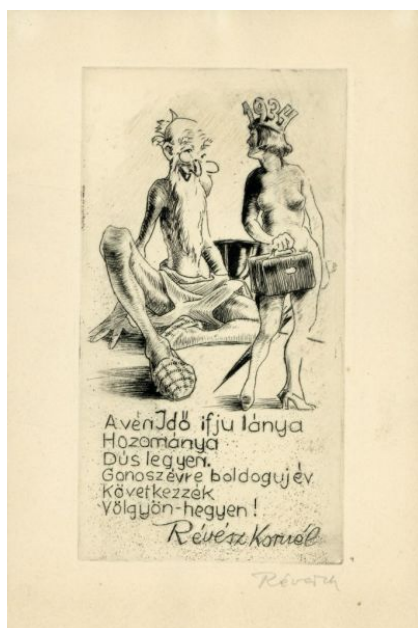 1934
A vén Idő ifju lánya
Hozománya
Dús legyen.
Gonosz évre boldog ujév
Következzék
Völgyön-hegyen!
Révész Kornél